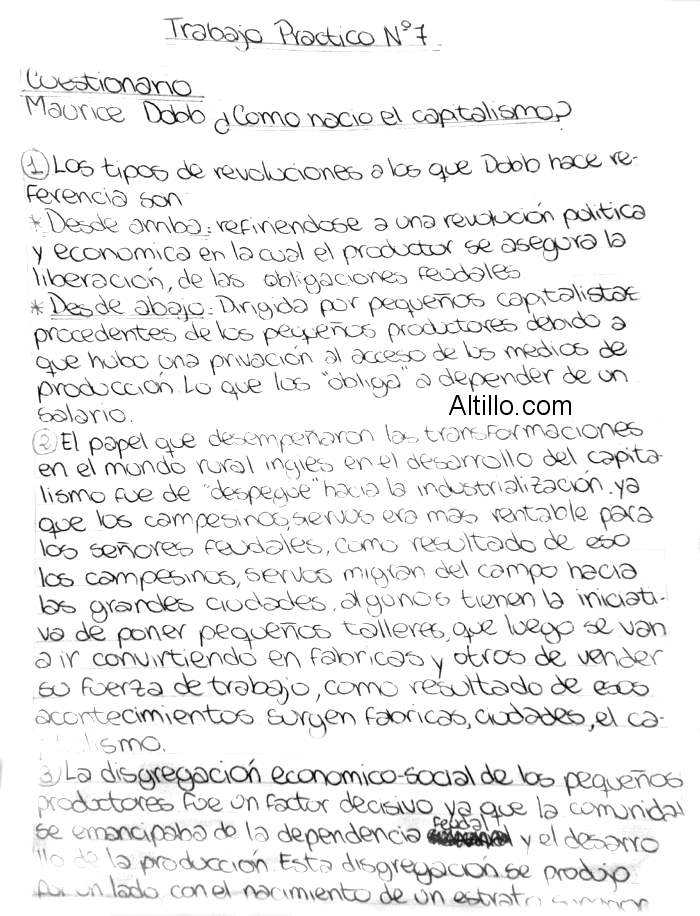 Trabajo Practico N°7
Cuestionario
Maurice Dobb ¿Como nacio el capitalismo?
1 Los tipos de revoluciones a los que Dobb hace re-
ferencia son
* Desde arriba: refiriendose a una revolución politica
y economica en la cual el productor se asegura la
liberación, de las obligaciones feudales
* Desde abajo: Dirigida por pequeños capitalistas
procedentes de los pequeños productores debido a
que hubo una privación al acceso de los medios de
producción. Lo que los "obliga" a depender de un
salario.
Altillo.com
2 El papel que desempeñaron las transformaciones
en el mundo rural ingles en el desarrollo del capita-
lismo fue de "despegue" hacia la industrialización. ya
que los campesinos, servos era mas rentable para
los señores feudales, como resultado de eso
los campesinos, servos migran del campo hacia
las grandes ciudades, algunos tienen la iniciati-
va de poner pequeños talleres, que luego se van
a ir convirtiendo en fabricas y otros de vender
su fuerza de trabajo, como resultado de esos
acontecimientos surgen fabricas, ciudades, el ca-
lismo.
3 La disgregación economico-social de los pequeños
productores fue un factor decisivo ya que la comunidad
se emancipaba de la dependencia feudal y el desarro
llo de la producción. Esta disgregación se produjo
por un lado, con el nacimiento de un estrato